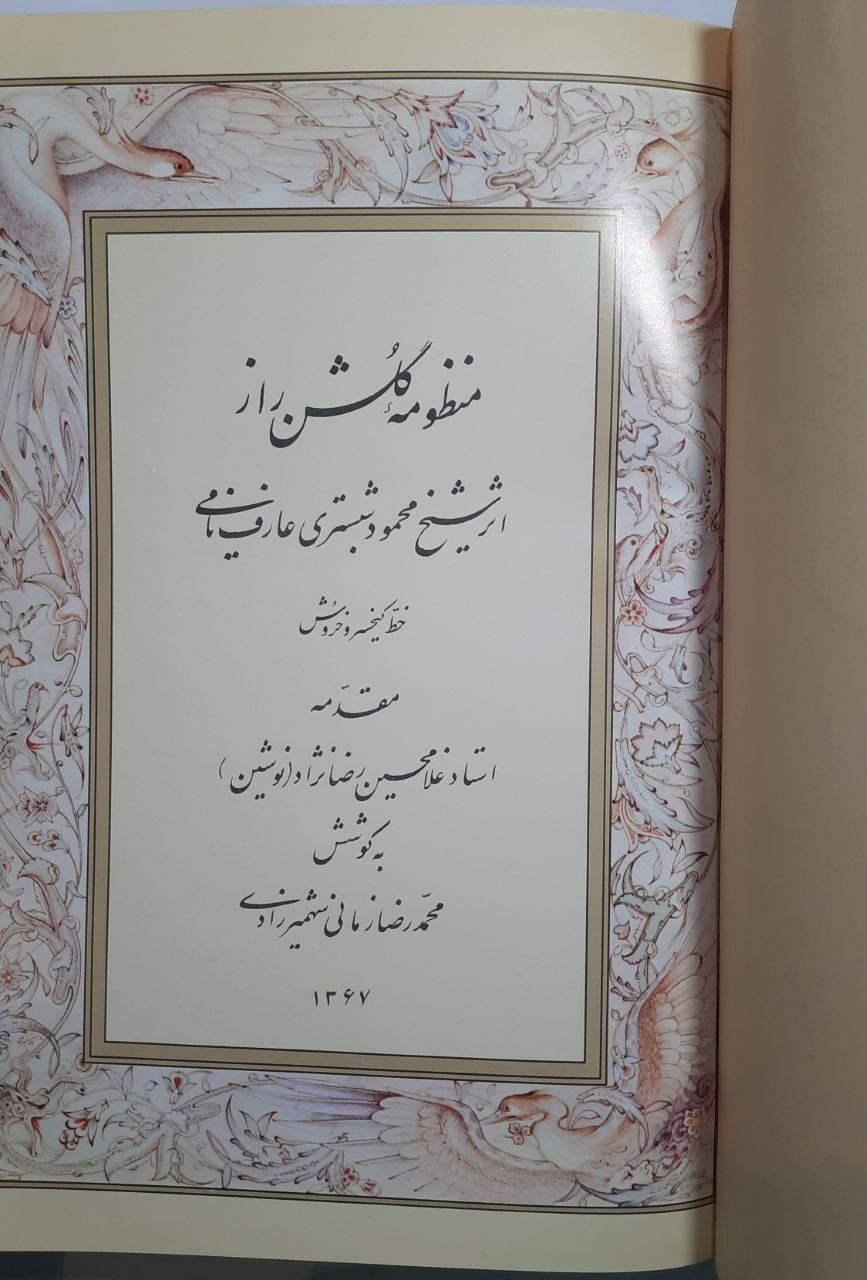 منظومهٔ گلشن راز
اثر شیخ محمود شبستری عارف نامی
خطّ کیخسرو خروش
مقدّمه
استاد غلامحسین رضانژاد (نوشین)
به کوشش
محمّدرضا زمانی شهمیرزادی
۱۳۶۷